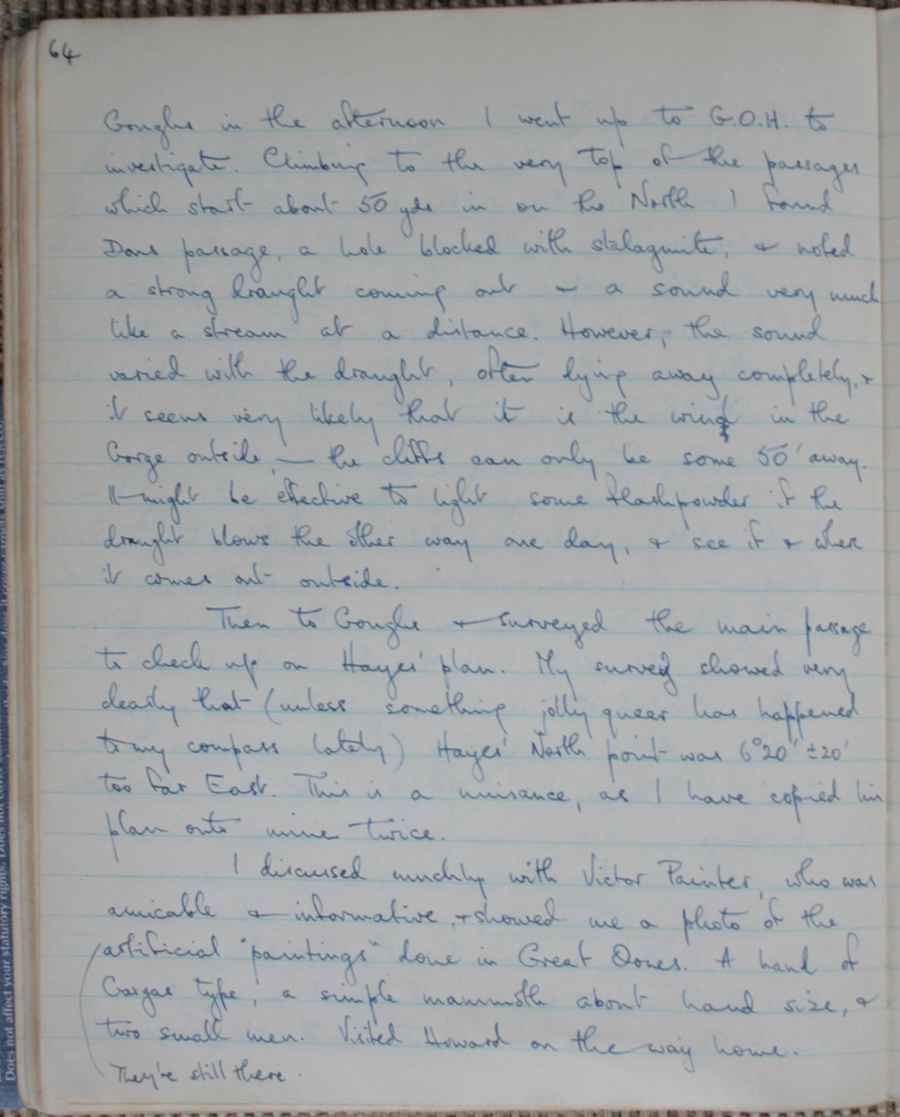 64
Goughs in the afternoon I went up to G.O.H. to
investigate. Climbing to the very top of the passages
which start about 50 yds in on the North I found
Dons passage, a hole blocked with stalagmite, & noted
a strong draught coming out — a sound very much
like a stream at a distance. However, the sound
varied with the draught, often dying away completely, &
it seems very likely that it is the wind in the
Gorge outside, — the cliffs can only be some 50' away.
It might be effective to light some flashpowder if the
draught blows the other way one day, & see if & when
it comes out outside.
Then to Goughs & surveyed the main passage
to check up on Hayes' plan. My survey showed very
clearly that (unless something jolly queer has happened
to my compass lately) Hayes' North point was 6°20' ±20'
too far East. This is a nuisance, as I have copied his
plan onto mine twice.
I discussed muchly with Victor Painter, who was
amicable & informative, & showed me a photo of the
artificial "paintings" done in Great Oones. A hand of
Gargas type, a simple mammoth about hand size, &
two small men. Visited Howard on the way home.
They're still there.
Does not affect your statutory rights.